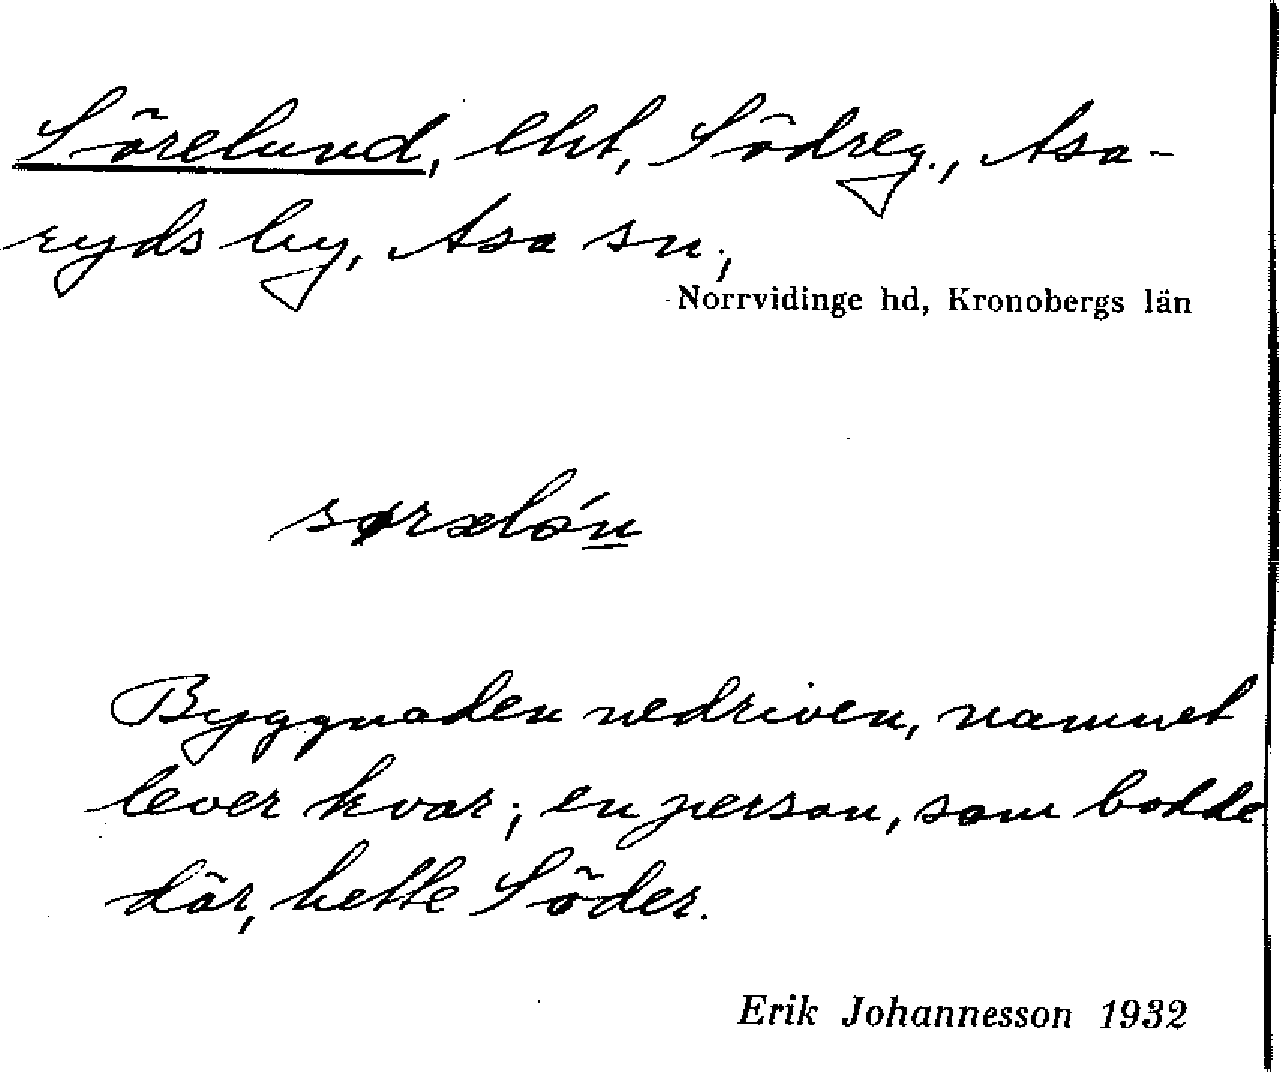 Sörelund, lht, Södreg., Asa-
ryds by, Asa sn,
Norrvidinge hd, Kronobergs län
sørælón
Byggnaden nedriven, namnet
lever kvar; en person, som bodde
där, hette Söder.
Erik Johannesson 1932